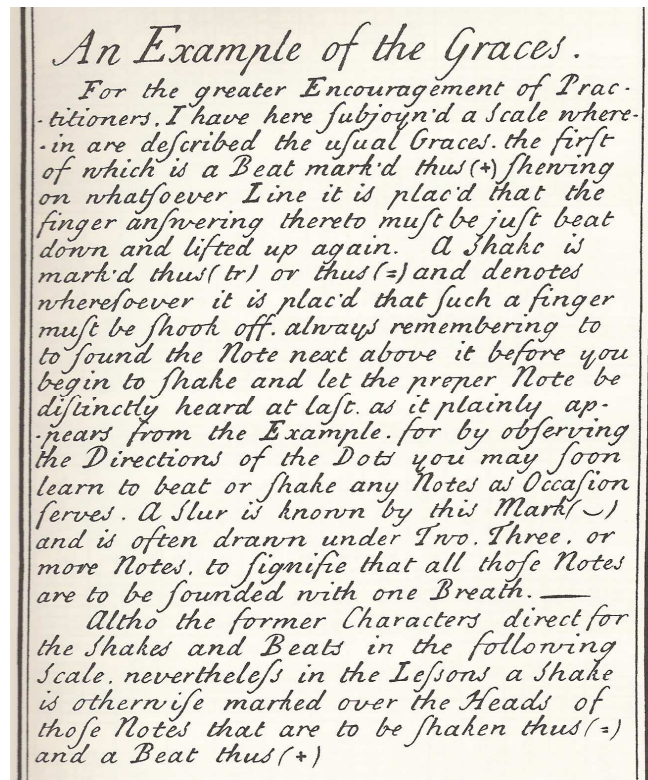 An Example of the Graces.
For the greater Encouragement of Prac-
-titioners. I have here ſubjoyn'd a Scale where-
-in are deſcribed the uſual Graces. the firſt
of which is a Beat mark'd thus (+) ſhewing
on whatſoever Line it is plac'd that the
finger anſwering thereto muſt be juſt beat
down and lifted up again. A Shake is
mark'd thus (tr) or thus (=) and denotes
whereſoever it is plac'd that ſuch a finger
muſt be ſhook off. always remembering to
to ſound the Note next above it before you
begin to ſhake and let the proper Note be
diſtinctly heard at laſt. as it plainly ap-
-pears from the Example. for by obſerving
the Directions of the Dots you may ſoon
learn to beat or ſhake any Notes as Occaſion
ſerves. A Slur is known by this Mark (‿)
and is often drawn under Two. Three. or
more Notes. to ſignifie that all thoſe Notes
are to be ſounded with one Breath. —
Altho the former Characters direct for
the Shakes and Beats in the following
Scale. nevertheleſs in the Leſsons a Shake
is otherwiſe marked over the Heads of
thoſe Notes that are to be ſhaken thus (=)
and a Beat thus (+)